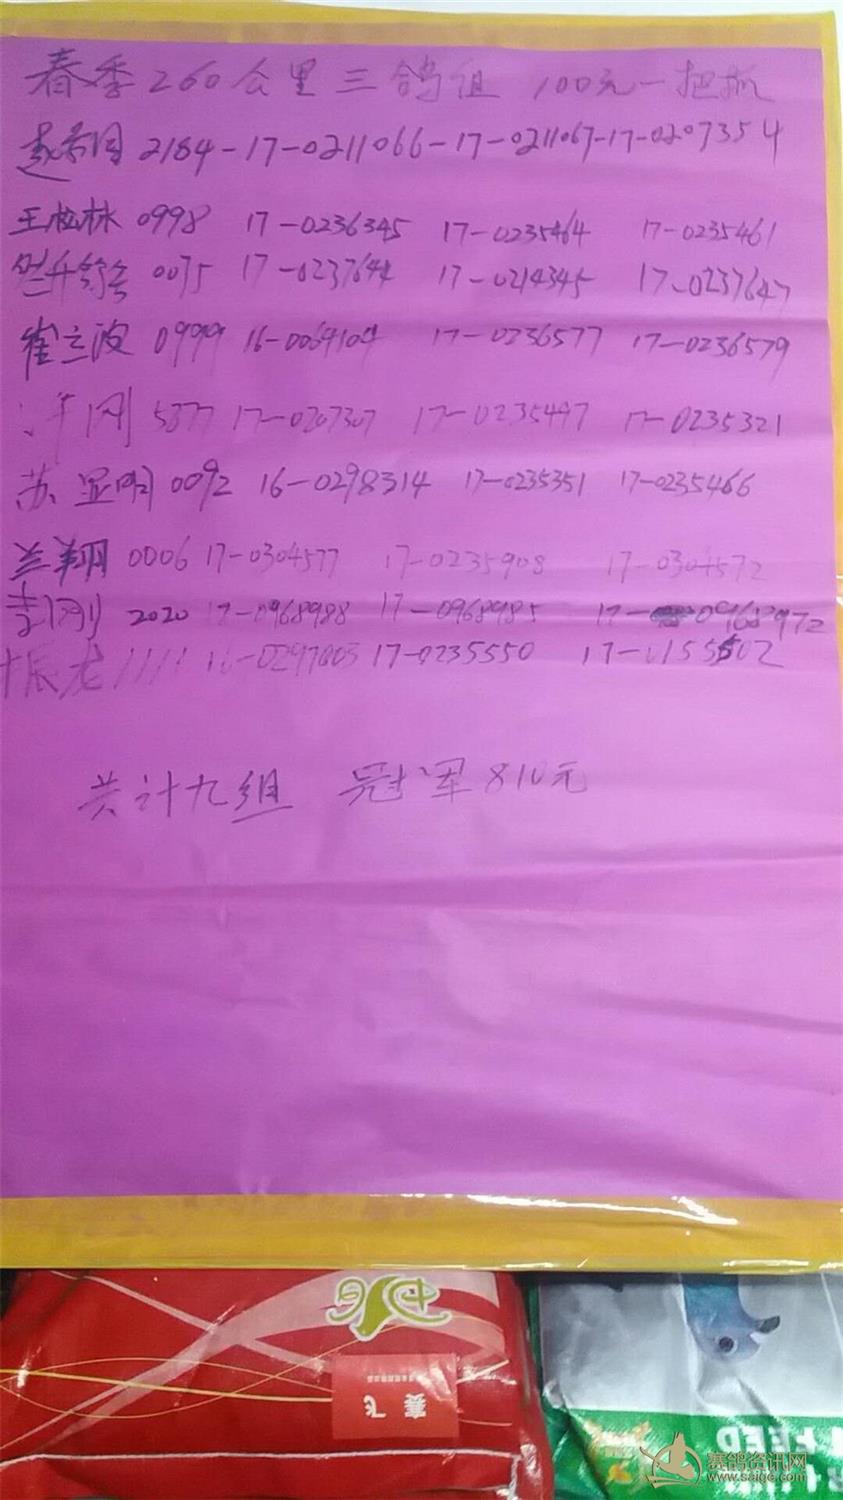 春季260公里三鸽组 100元一把抓
2184-17-0211066-17-0211067-17-0207354
王松林 0998 17-0236345 17-0235464 17-0235461
0075 17-0237644 17-0214345 17-0237647
崔立波 0999 16-0064104 17-0236577 17-0236579
5877 17-0207307 17-0235497 17-0235321
苏显明 0092 16-0298314 17-0235351 17-0235466
兰翔 0006 17-0304577 17-0235908 17-0304572
李刚 2020 17-0968988 17-0968985 17-0968972
振龙 1111 16-0297003 17-0235550 17-0155502
共计九组 冠军810元
赛飞
FEED
赛鸽资讯网
www.saige.com